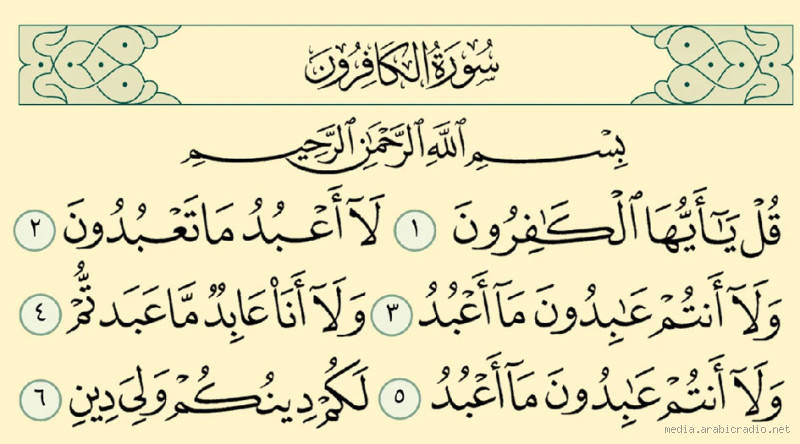 سُورَةُ الكَافِرُونَ
بِسْمِ ٱللَّهِ ٱلرَّحْمَٰنِ ٱلرَّحِيمِ
قُلْ يَٰٓأَيُّهَا ٱلْكَٰفِرُونَ ١ لَآ أَعْبُدُ مَا تَعْبُدُونَ ٢
وَلَآ أَنتُمْ عَٰبِدُونَ مَآ أَعْبُدُ ٣ وَلَآ أَنَا۠ عَابِدٌ مَّا عَبَدتُّمْ ٤
وَلَآ أَنتُمْ عَٰبِدُونَ مَآ أَعْبُدُ ٥ لَكُمْ دِينُكُمْ وَلِىَ دِينِ ٦
media.arabicradio.net